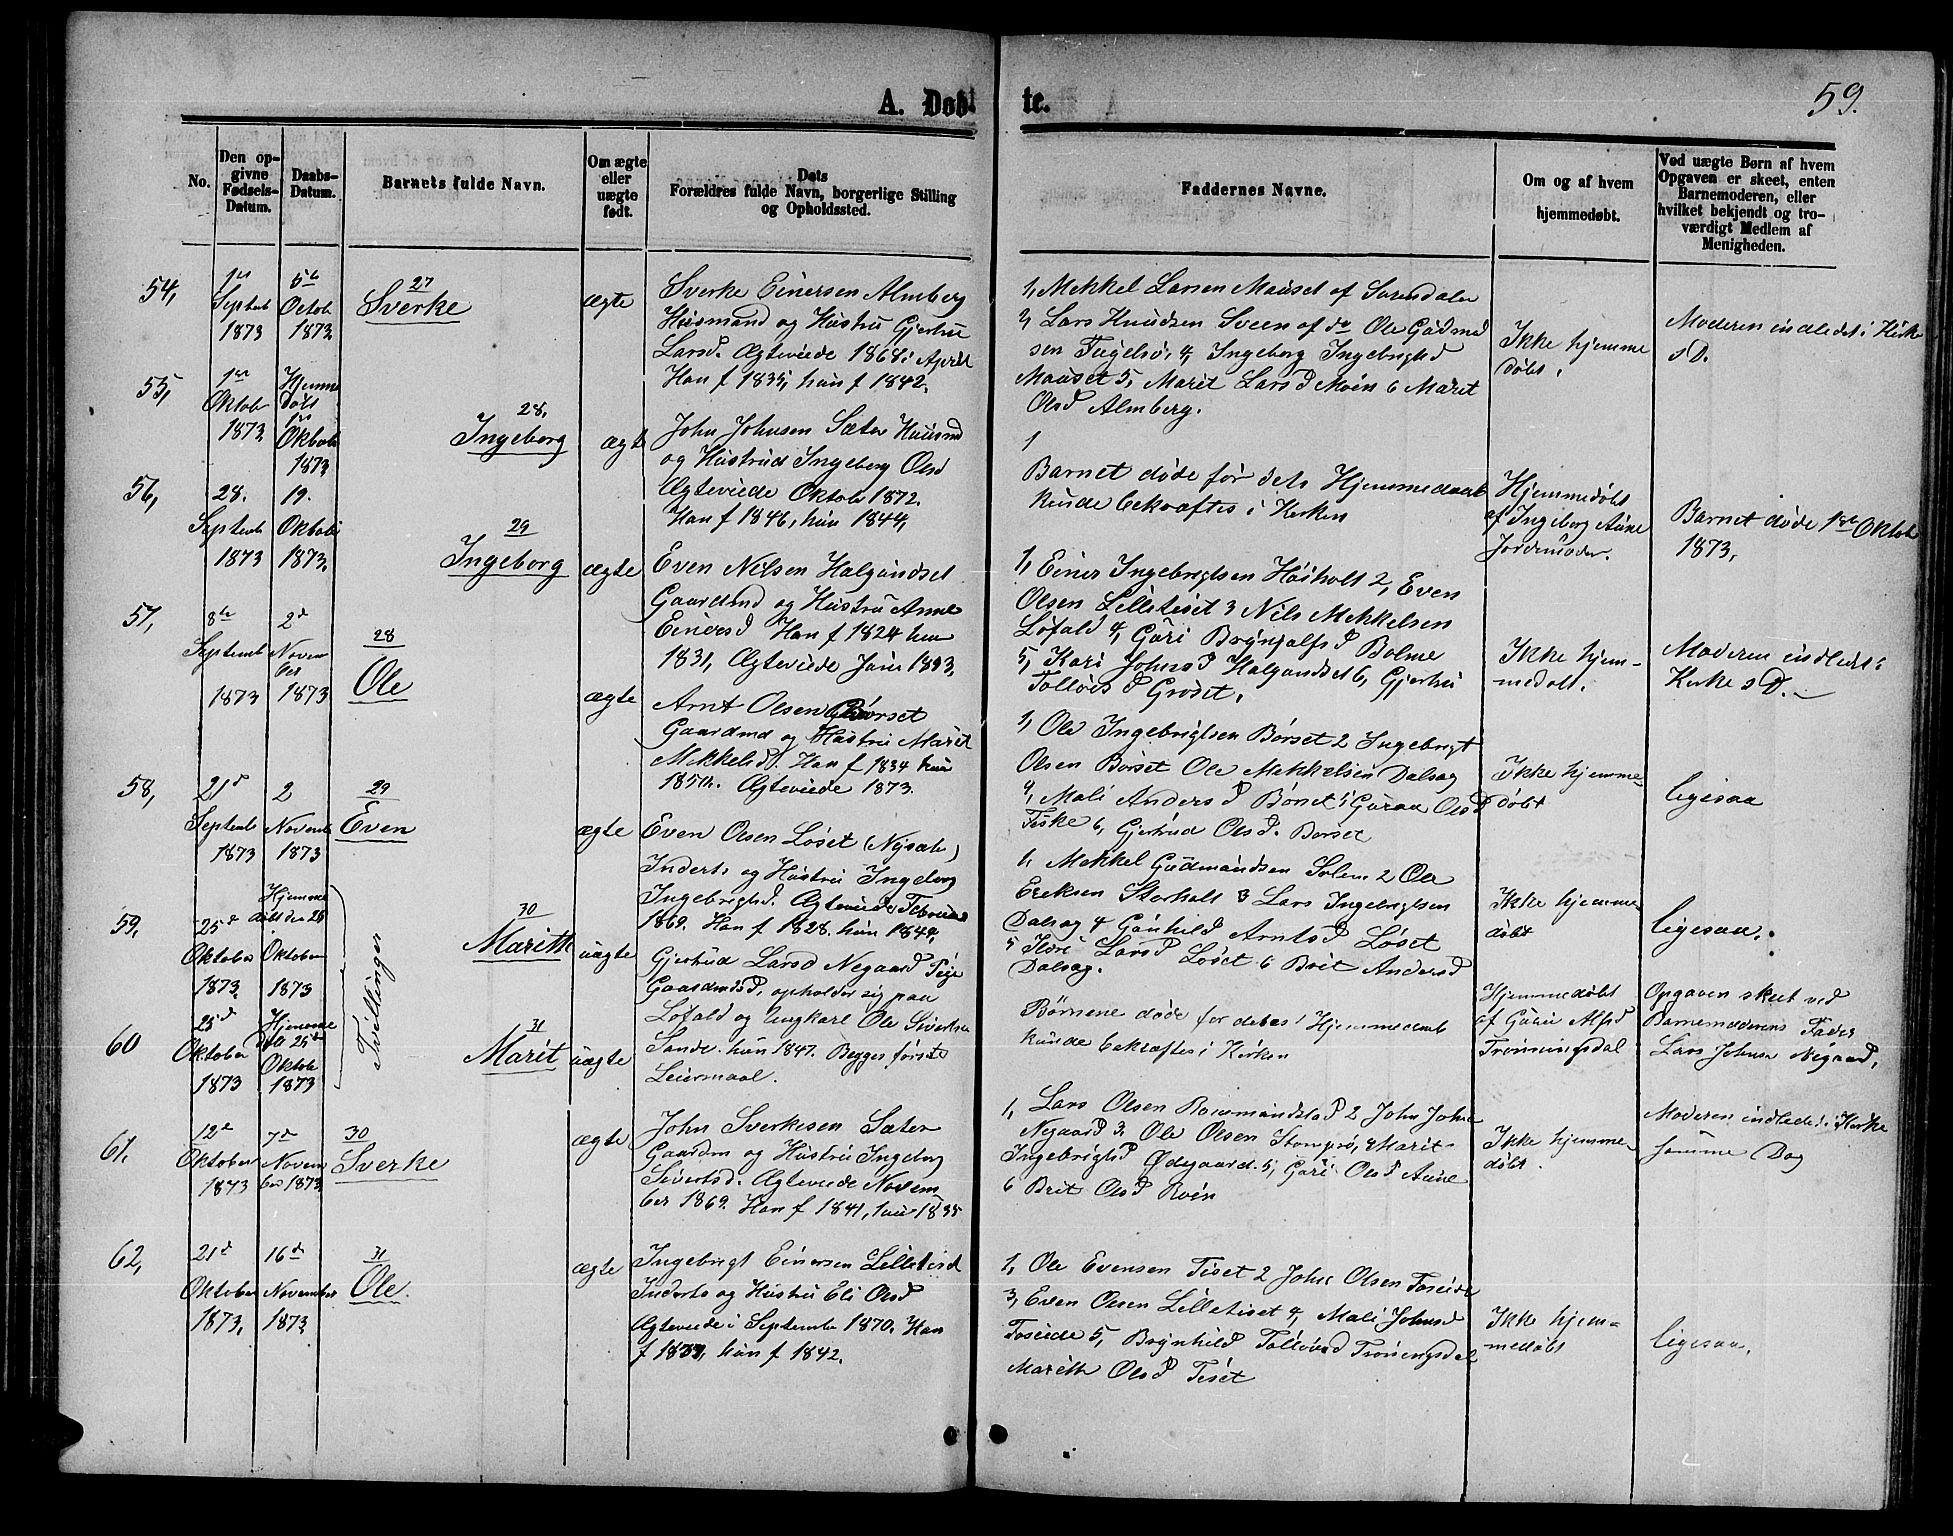 A. Døb- te.
59.
No.
Den op-
givne
Fødsels-
Datum.
Daabs-
Datum.
Barnets fulde Navn.
Om ægte
eller
uægte
født.
Dets
Forældres fulde Navn, borgerlige Stilling
og Opholdssted.
Faddernes Navne.
Om og af hvem
hjemmedøbt.
Ved uægte Børn af hvem
Opgaven er skeet, enten
Barnemoderen, eller
hvilket bekjendt og tro-
værdigt Medlem af
Menigheden.
54,
1ste
Septemb
1873
5te
Octob
1873
27
Sverke
ægte
Sverke Einersen Almberg
Huusmand og Hustru Gjertru
Larsd. Ægteviede 1868 i April
Han f 1835, hun f 1842.
1, Mekkel Larsen Mauset af Surendalen
2, Lars Knudsen Sveen af do Ole Gudmd
sen Fugelsø, 4, Ingeborg Ingebrigtsd
Mauset 5, Marit Larsd Moen 6 Marit
Olsd Almberg.
Ikke hjemme
døbt.
Moderen indledet i Kirke
s D.
55,
1ste
Oktober
1873
Hjemme
døbt
1ste
Oktob
1873
28,
Ingeborg
ægte
John Johnsen Sæter Huusmd
og Hustrud Ingeborg Olsd
Ægteviede Oktob 1872.
Han f 1846, hun 1844,
1
Barnet døde før dets Hjemmedaab
kunde bekræftes i Kirken
Hjemmedøbt
af Ingeborg Aune
Jordemoder.
Barnet døde 1ste Oktob
1873,
56,
28.
Septemb
1873
19.
Oktobr
1873.
29
Ingeborg
ægte
Even Nilsen Halgundset
Gaardmd og Hustru Anne
Einersd Han f 1824 hun
1831, Ægteviede Juni 1853,
1, Einer Ingebrigtsen Husholt 2, Even
Olsen Lilletiset 3 Nils Mekkelsen
Løfald 4, Guri Brynjalfsd Bolme
5, Kari Johnsd Halgundset 6, Gjertru
Tolløvs D Grøset,
Ikke hjem-
medøbt.
Moderen indledt i
Kirke s D.
57,
8de
Septemb
1873
2d
Novem
ber
1873
28
Ole
ægte
Arnt Olsen Børset
Gaardmd og Hustru Marit
Mekkelsd. Han f 1834 hun
Ægteviede 1873.
1, Ole Ingebrigtsen Børset 2 Ingebrigt
Olsen Børset Ole Mekkelsen Dalsag
4, Mali Anders D Børset 5 Guraa Ols D
Fiske 6, Gjertrud Olsd. Børset
Ikke hjemme
døbt
ligesaa
58,
21d
Septemb
1873
2
Novemb
1873
29
Even
ægte
Even Olsen Løset (Nysæter)
Inderts og Hustru Ingeborg
Ingebrigtsd. Ægteviede Februar
1869. Han f 1828. hun 1844,
1, Mekkel Gudmundsen Solem 2 Ole
Eriksen Storholt 3 Lars Ingebrigtsen
Dalsag 4 Gunhild Arntsd Løset
5 Lars D Løset 6 Brit Anders D
Dalsag.
Ikke hjemme
døbt
ligesaa.
59,
25d
Oktober
1873
Hjemme
døbt den 25
Oktober
1873
Tvillinger
30
Marith
uægte
Gjertrud Larsd Negaard Pige
Gaardmdsd, opholder sig paa
Løfald og Ungkarl Ole Sivertsen
Sande. hun 1847. Begges første
Leiermaal.
Børnene døde før deres Hjemmedaab
kunde bekræftes i Kirken
Hjemmedøbt
af Guru Alfsd
Trønningsdal
Opgaven skeet ved
Barnemoderens Fader
Lars Johnsen Negaard,
60
25d
Oktober
1873
Hjemme
døbt 25de
Oktob
1873
31
Marit
uægte
61,
12te
Oktober
1873
7de
Novem
ber 1873
30
Sverke
ægte
John Sverkesen Sæter
Gaardm og Hustru Ingeborg
Sivertsd. Ægteviede Novem
ber 1869. Han f 1841, hun 1835
1, Lars Olsen 2 John John
Negaard 3. Ole Olsen Stomprø, 4 Marit
Ingebrigtsd Ødegaard. 5, Guri Olsd Aune
6 Brit Olsd Roen
Ikke hjemme-
døbt.
Moderen indledet i Kirke
samme Dag
62,
21d
Oktober
1873,
16d
November
1873
31
Ole.
ægte
Ingebrigt Einersen Lilletiset
Inderts og Hustru Eli Olsd
Ægteviede i September 1870. Han
f 1837, hun f 1842.
1, Ole Evensen Tiset 2 John Olsen Foseide
3, Even Olsen Lilletiset 4, Mali Johnsd
Foseide 5, Brynhild Tolløvsd Trønningsdal
Marith Olsd Tiset
Ikke hjem-
medøbt
ligesaa.